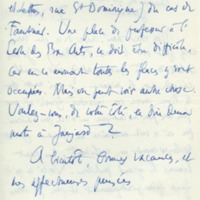 et Lettres, rue St Dominique) du cas de
Fautrier. Une place de professeur à l'
École des Beaux Arts, ce doit être difficile,
car en ce moment toutes les places y sont
occupées. Mais on peut voir autre chose.
Voulez-vous, de votre côté, en dire deux
mots à Jaujard ?
À bientôt, bonnes vacances, et
mes affectueuses pensées